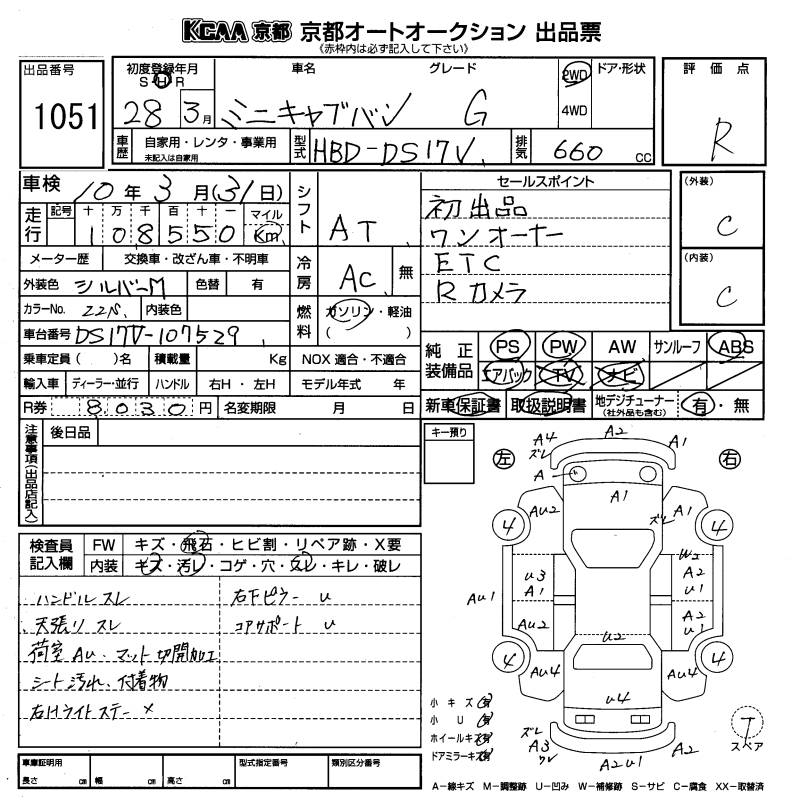 KCAA 京都 京都オートオークション 出品票
《赤枠内は必ず記入して下さい》
出品番号
1051
初度登録年月
S H R
28 3月
車名
グレード
ミニキャブバン G
2WD
4WD
ドア・形状
評価点
R
車歴
自家用・レンタ・事業用
未記入は自家用
型式
HBD-DS17V
排気
660 cc
車検 10年 3月(31日)
走行
記号 十 万 千 百 十 一 マイル
1 0 8 5 5 0 Km
メーター歴 交換車・改ざん車・不明車
外装色 シルバーM 色替 有
カラーNo. Z2N 内装色
車台番号 DS17V-107529
乗車定員 ( )名 積載量 Kg
NOX 適合・不適合
輸入車 ディーラー・並行 ハンドル 右H・左H モデル年式 年
R券 8,030円 名変期限 月 日
シフト
AT
冷房
AC 無
燃料
ガソリン・軽油
( )
セールスポイント
初出品
ワンオーナー
ETC
Rカメラ
(外装)
C
(内装)
C
純正装備品
PS PW AW サンルーフ ABS
エアバック TV ナビ
新車保証書 取扱説明書 地デジチューナー
(社外品も含む)
有・無
注意事項(出品店記入)
後日品
キー預り
検査員記入欄
FW キズ・飛石・ヒビ割・リペア跡・X要
内装 キズ・汚レ・コゲ・穴・スレ・キレ・破レ
ハンドル スレ
天張り スレ
荷室 AU、マット切開加工
シート汚れ、付着物
右Hライトステー ×
右下ピラー U
コアサポート U
左
右
A4
ズレ
A2
A1
A
A1
AU2
ズレ
A1
4
4
U3
A1
W2
A2
U1
AU1
AU2
A2
U1
U2
4
4
AU4
AU4
U4
ズレ
A3
ワレ
A2U1
A2
小キズ 有
小U 有
ホイールキズ 有
ドアミラーキズ 有
T
スペア
車庫証明用
長さ cm 幅 cm 高さ cm
型式指定番号
類別区分番号
A−線キズ M−調整跡 U−凹み W−補修跡 S−サビ C−腐食 XX−取替済